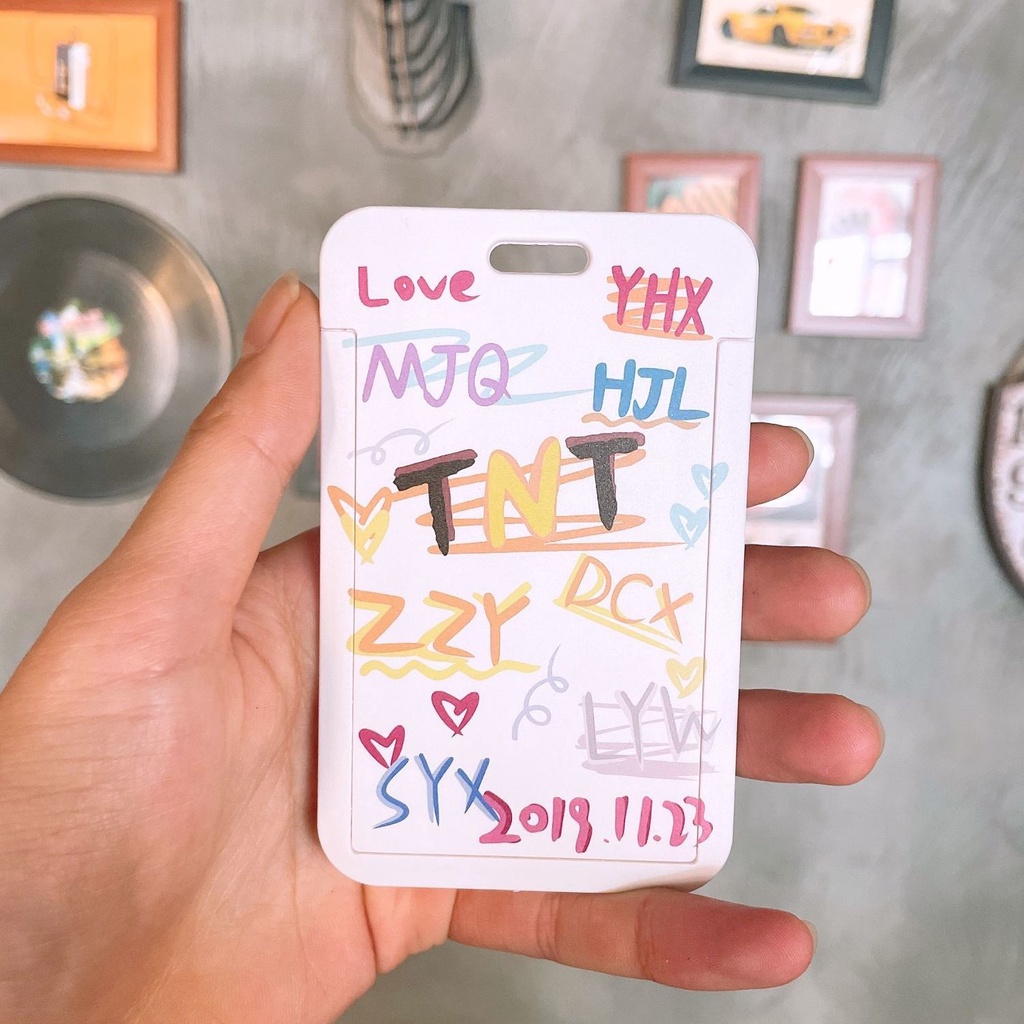 Love
YHX
MJQ
HJL
TNT
DCX
ZZY
LYW
SYX
2019.11.23